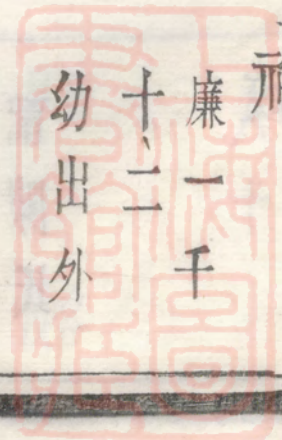 廉一千
十、二
幼出外